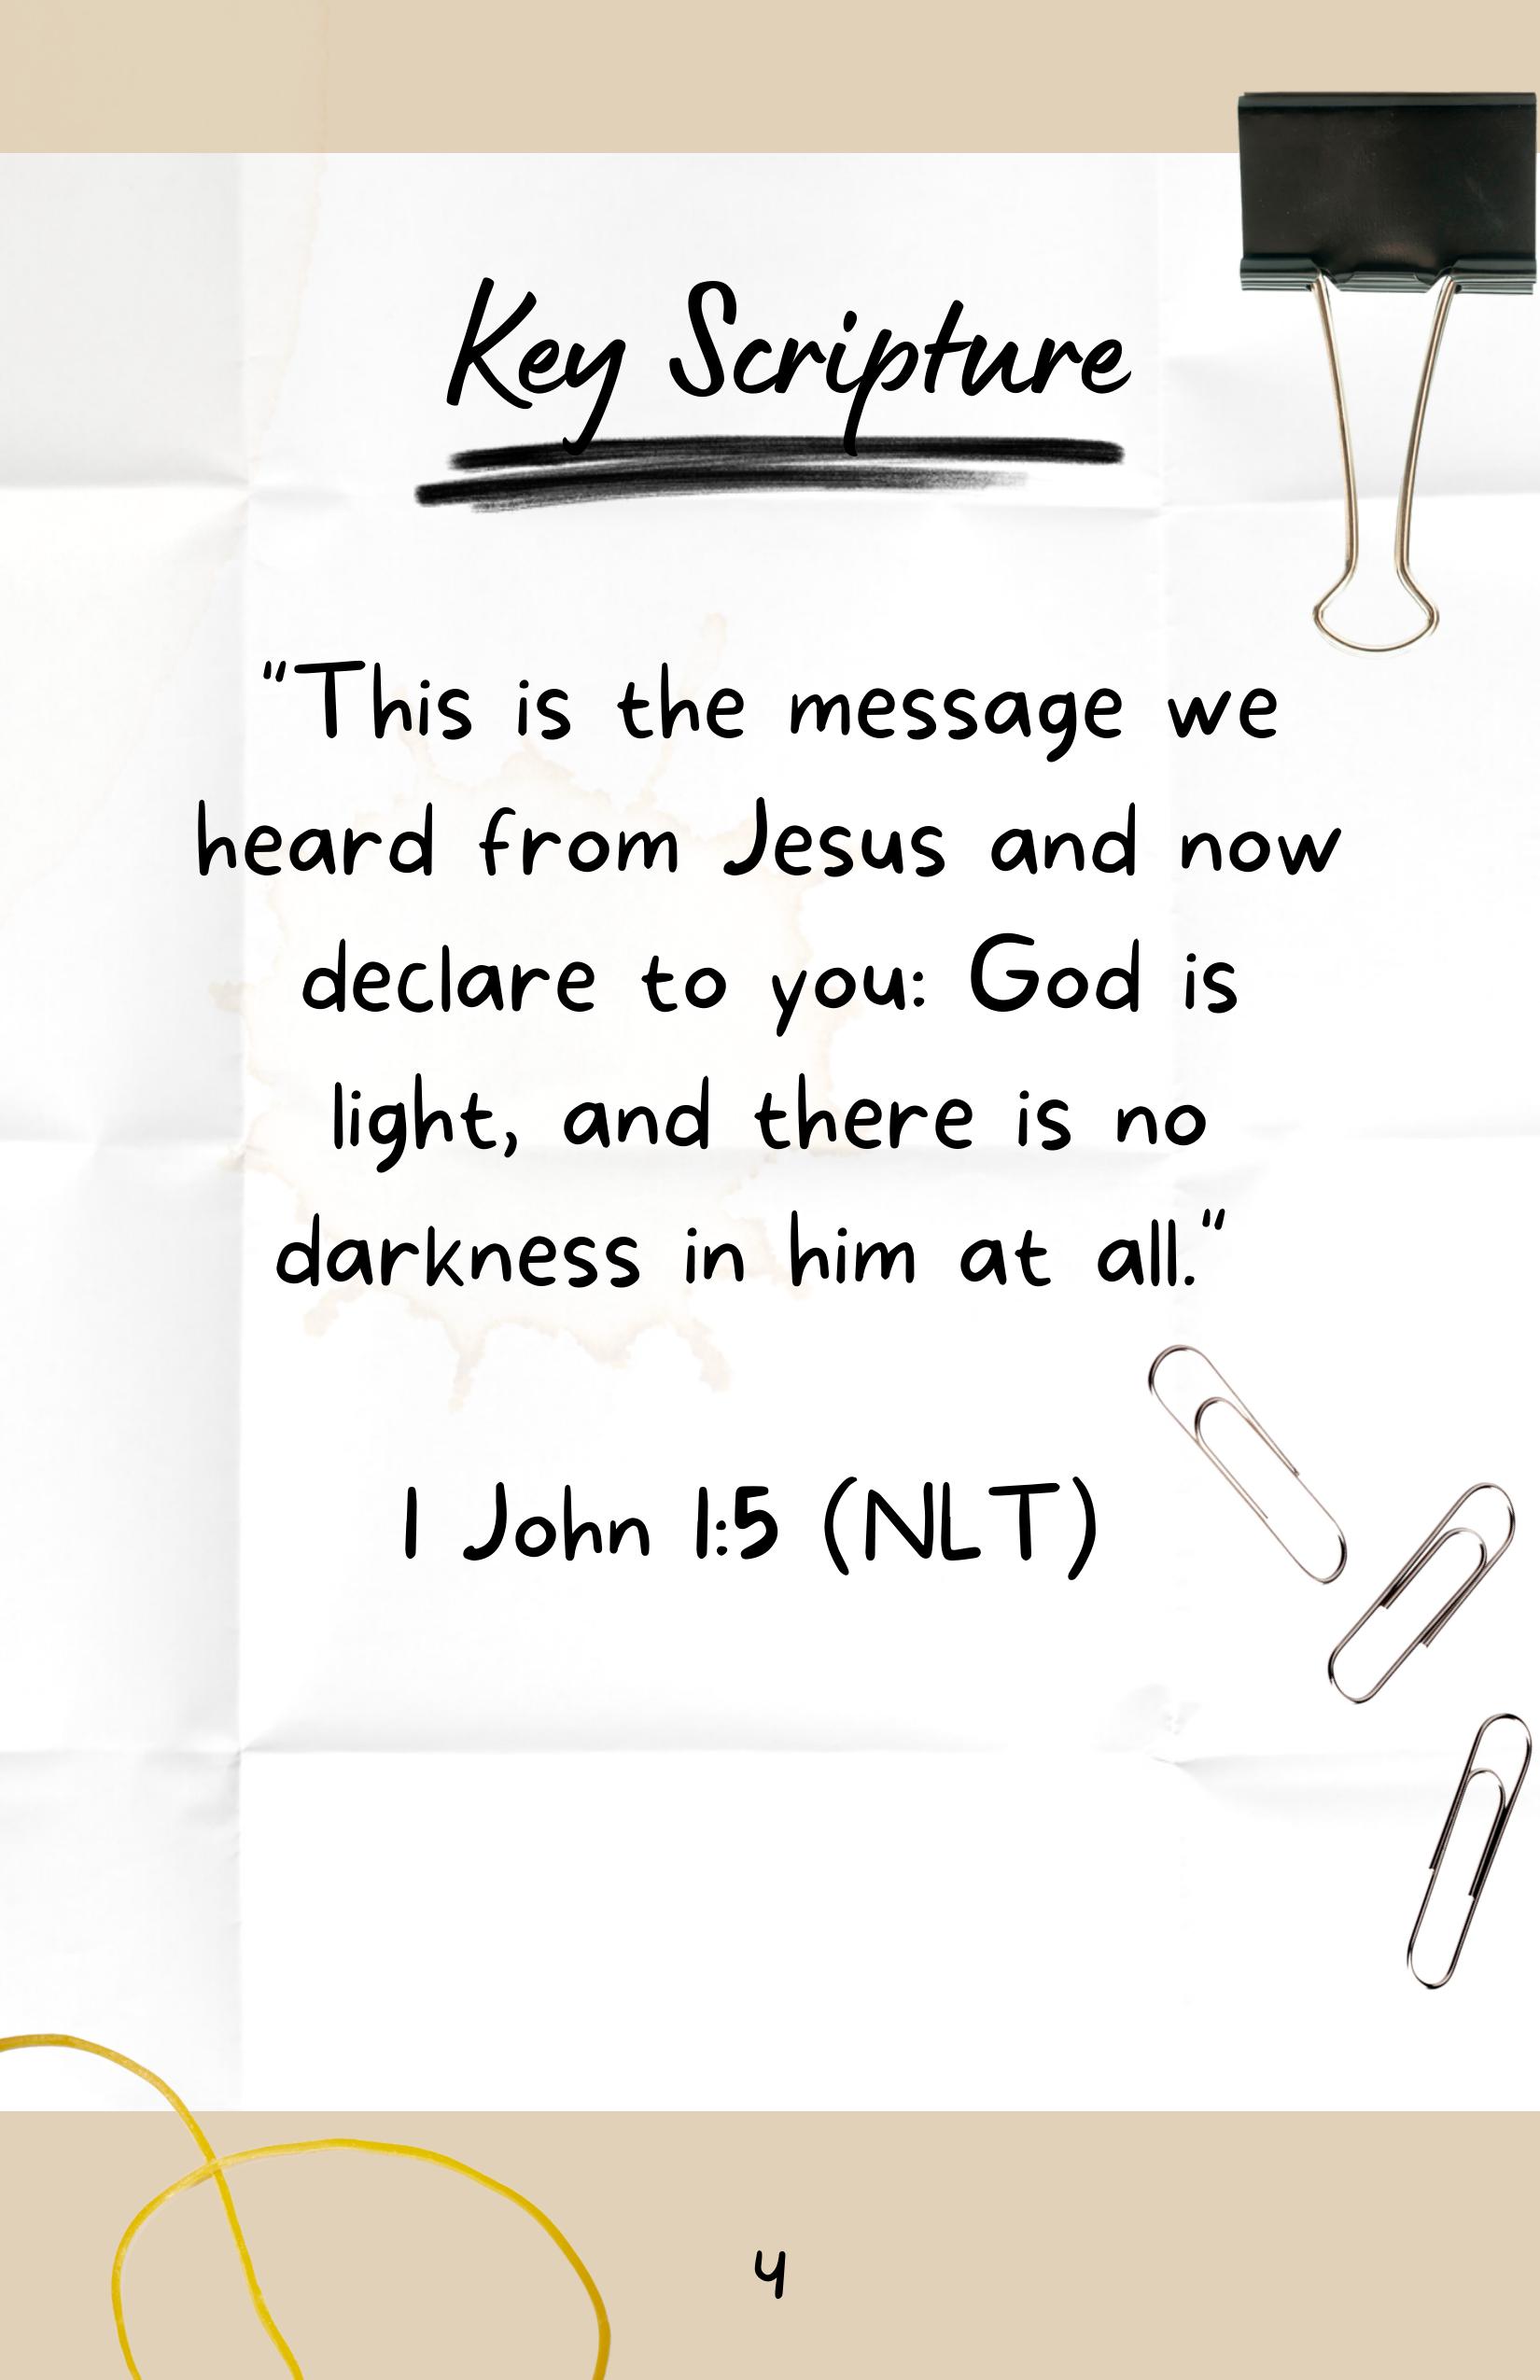 Key Scripture
"This is the message we
heard from Jesus and now
declare to you: God is
light, and there is no
darkness in him at all."
1 John 1:5 (NLT)
4